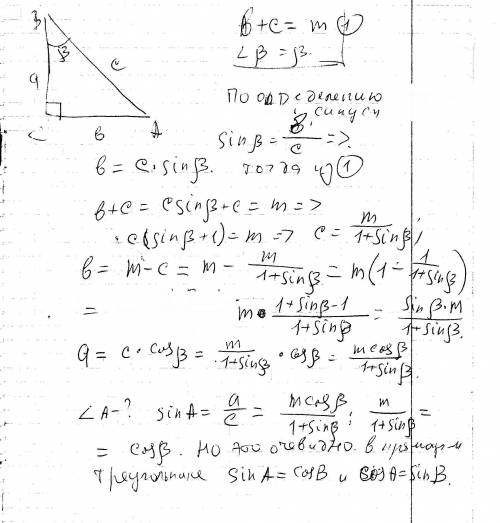 B
β
a
c
C
b
A
b + c = m ①
∠β = β.
По определению
синуса
sinβ = b/c =>
b = c · sinβ. тогда из ①
b + c = c sinβ + c = m =>
c(sinβ + 1) = m => c = m/(1 + sinβ);
b = m - c = m - m/(1 + sinβ) = m(1 - 1/(1 + sinβ))
= m · (1 + sinβ - 1)/(1 + sinβ) = sinβ · m/(1 + sinβ).
a = c · cosβ = m/(1 + sinβ) · cosβ = m cosβ/(1 + sinβ).
∠A - ? sinA = a/c = m cosβ/(1 + sinβ) : m/(1 + sinβ) =
= cosβ. Но это очевидно. в прямоуг
треугольнике sinA = cosB и cosA = sinB.